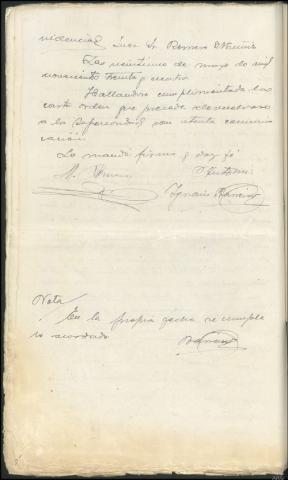 videncia Juez Sr. Romero
Las veintiuno de mayo de mil
novecientos treinta y cuatro
Hallandose cumplimentada la
carta orden que precede devuelvase
a la Superioridad con atenta comuni
cación.
Lo manda firma y doy fé
Ante mi:
Ignacio
Nota
En la propia fecha se cumple
lo acordado